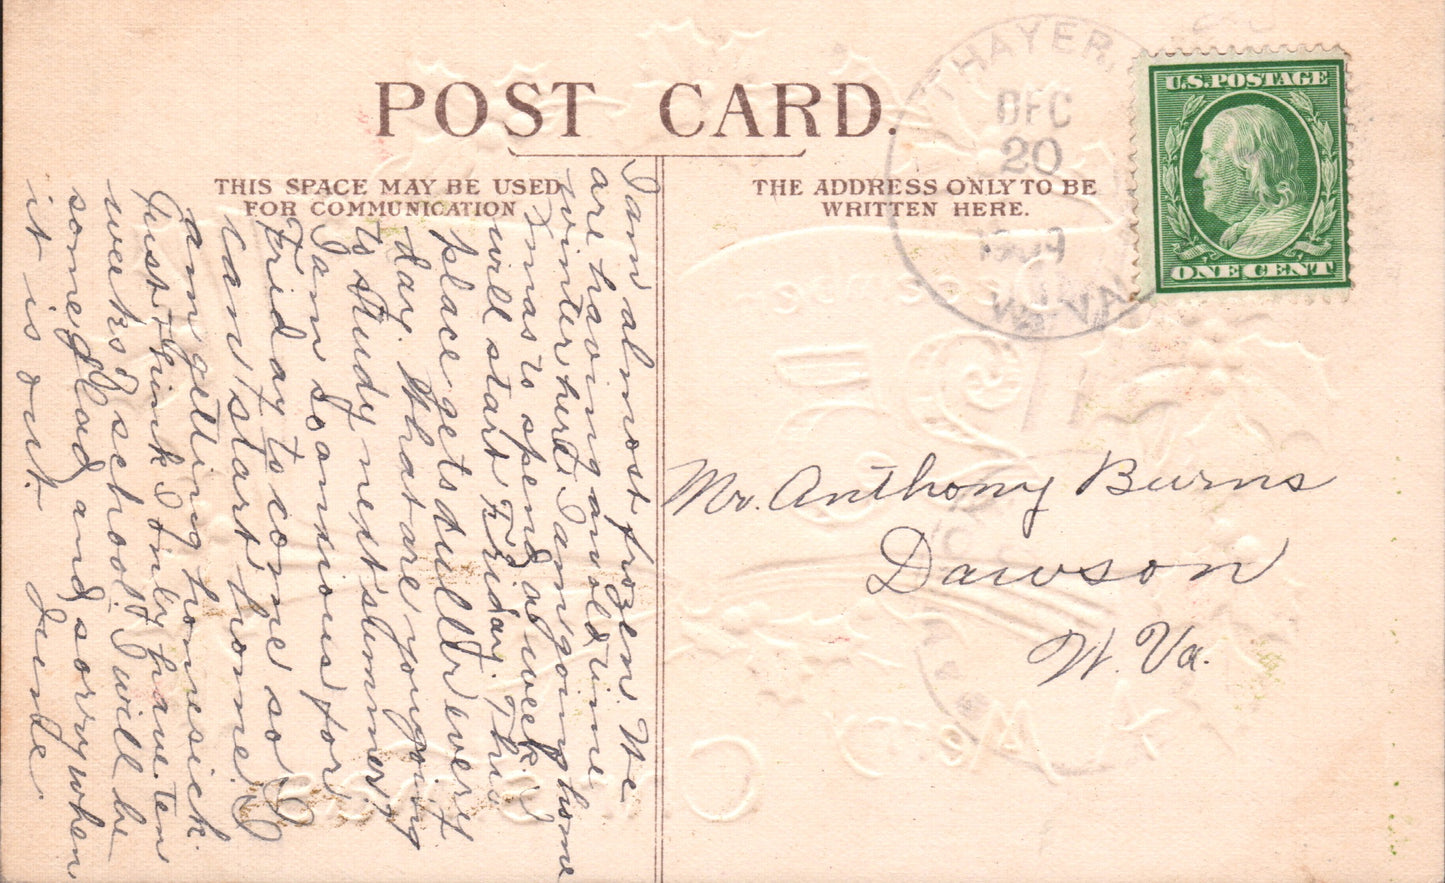 POST CARD.
THIS SPACE MAY BE USED
FOR COMMUNICATION
THE ADDRESS ONLY TO BE
WRITTEN HERE.
THAYER,
DEC
20
1909
W. VA.
U.S. POSTAGE
ONE CENT
I am almost frozen. We
are having an old time
winter here. I am going home
Xmas to spend a week. I
will start Friday. This
place gets duller every
day. What are you going
to study next summer?
I am so anxious for
Friday to come so I
can start home. I
am getting homesick.
Just think I only have ten
weeks' school. I will be
some glad and sorry when
it is out. June.
Mr. Anthony Burns
Dawson
W. Va.